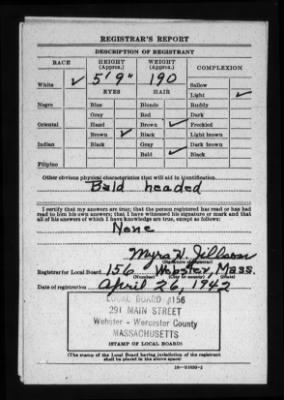 REGISTRAR'S REPORT
DESCRIPTION OF REGISTRANT
RACE HEIGHT (Approx.) WEIGHT (Approx.) COMPLEXION
White ✓ 5' 9" 190 Sallow
EYES HAIR Light ✓
Negro Blue Blonde Ruddy
Gray Red Dark
Oriental Hazel Brown ✓ Freckled
Brown ✓ Black Light brown
Indian Black Gray Dark brown
Bald ✓ Black
Filipino
Other obvious physical characteristics that will aid in identification
Bald headed
I certify that my answers are true; that the person registered has read or has had
read to him his own answers; that I have witnessed his signature or mark and that
all of his answers of which I have knowledge are true, except as follows:
None
Myra W. Jillson
Registrar for Local Board 156 Webster Mass.
(Number) (City or county)
Date of registration April 26, 1942
LOCAL BOARD #156
291 MAIN STREET
Webster - Worcester County
MASSACHUSETTS
(STAMP OF LOCAL BOARD)
(The stamp of the Local Board having jurisdiction of the registrant
shall be placed in the above space)